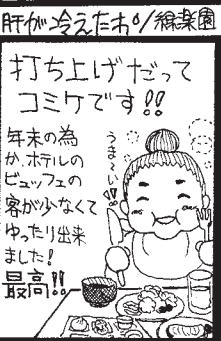 肝が冷えたわ%/緑楽園
打ち上げだって
コミケです!!
年末の為
か、ホテルの
ビュッフェの
客が少なくて
ゆったり出来
ました!
最高!!
うま〜い!!